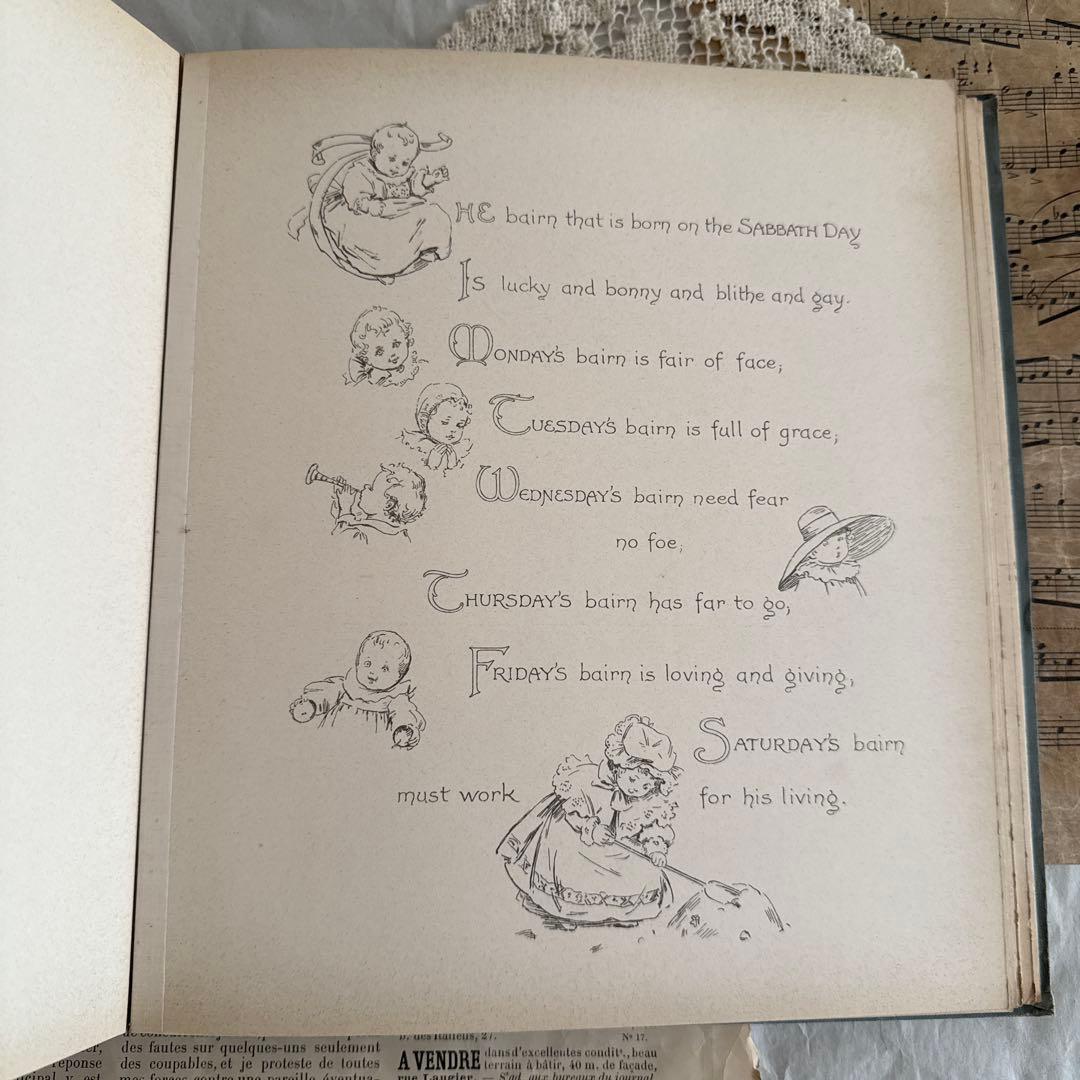 THE bairn that is born on the SABBATH DAY
Is lucky and bonny and blithe and gay.
MONDAY'S bairn is fair of face;
TUESDAY'S bairn is full of grace;
WEDNESDAY'S bairn need fear
no foe;
THURSDAY'S bairn has far to go;
FRIDAY'S bairn is loving and giving;
SATURDAY'S bairn
must work for his living.
des fautes sur quelques-uns seulement
des coupables, et je proteste de toutes
B. des Italiens, 27. Nº 17.
A VENDRE dans d'excellentes condit^s, beau
terrain à bâtir, 40 m. de façade,
rue Laugier. — S'ad. aux bureaux du journal